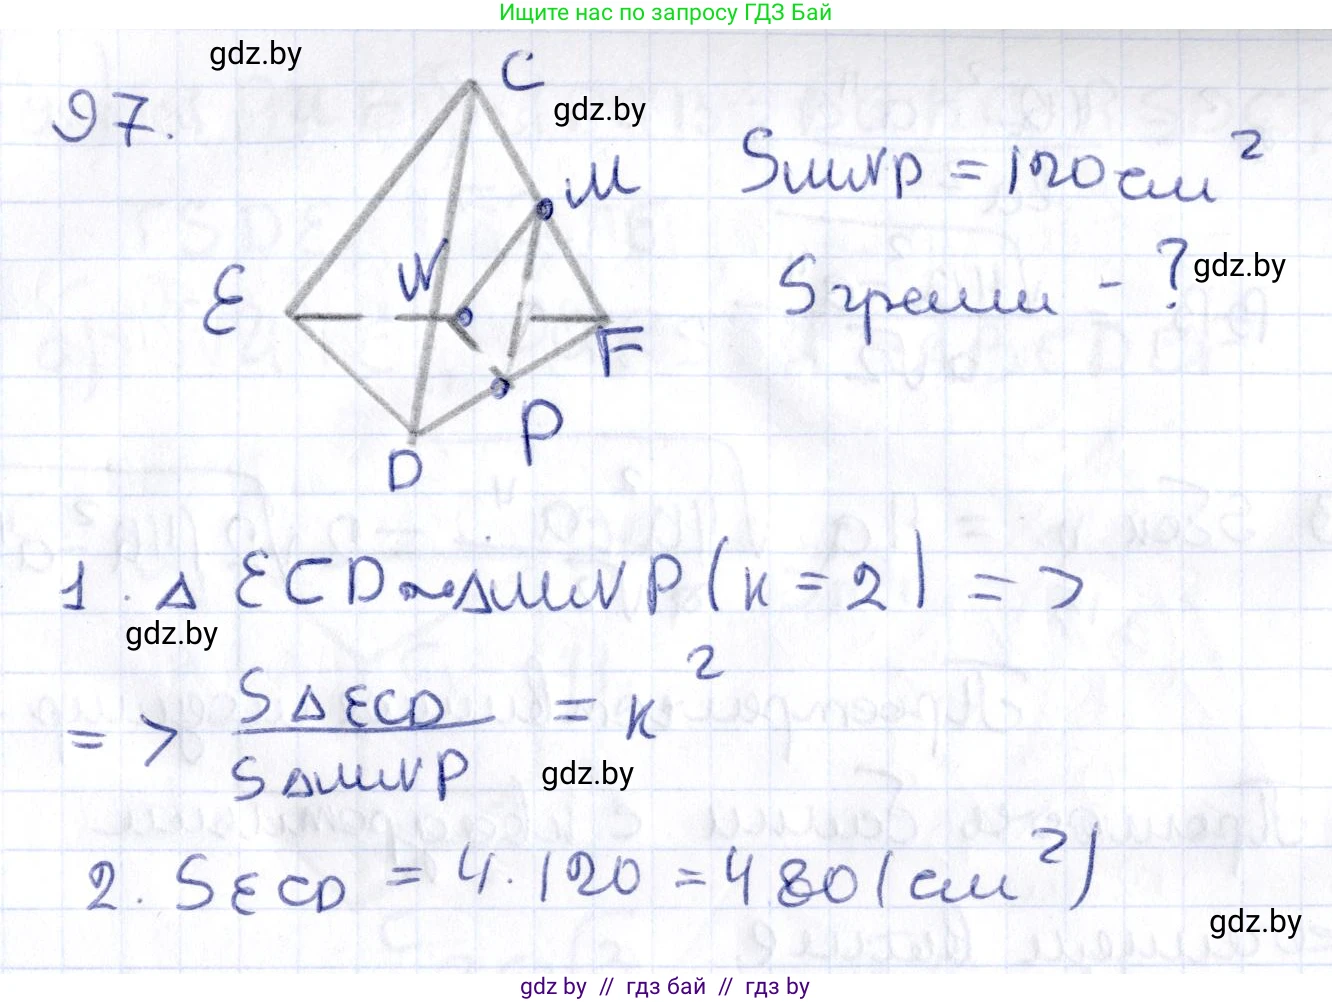 Ищите нас по запросу ГДЗ Бай
gdz.by
97.
C
gdz.by
M
Sмпр = 120 см²
E
N
Sграни - ?
gdz.by
F
P
D
1. △ ECD ~ △MNP (k = 2) =>
gdz.by
=> S△ECD / S△MNP = k²
gdz.by
2. SECD = 4 · 120 = 480 (см²)
gdz.by
gdz by // гдз бай // гдз by